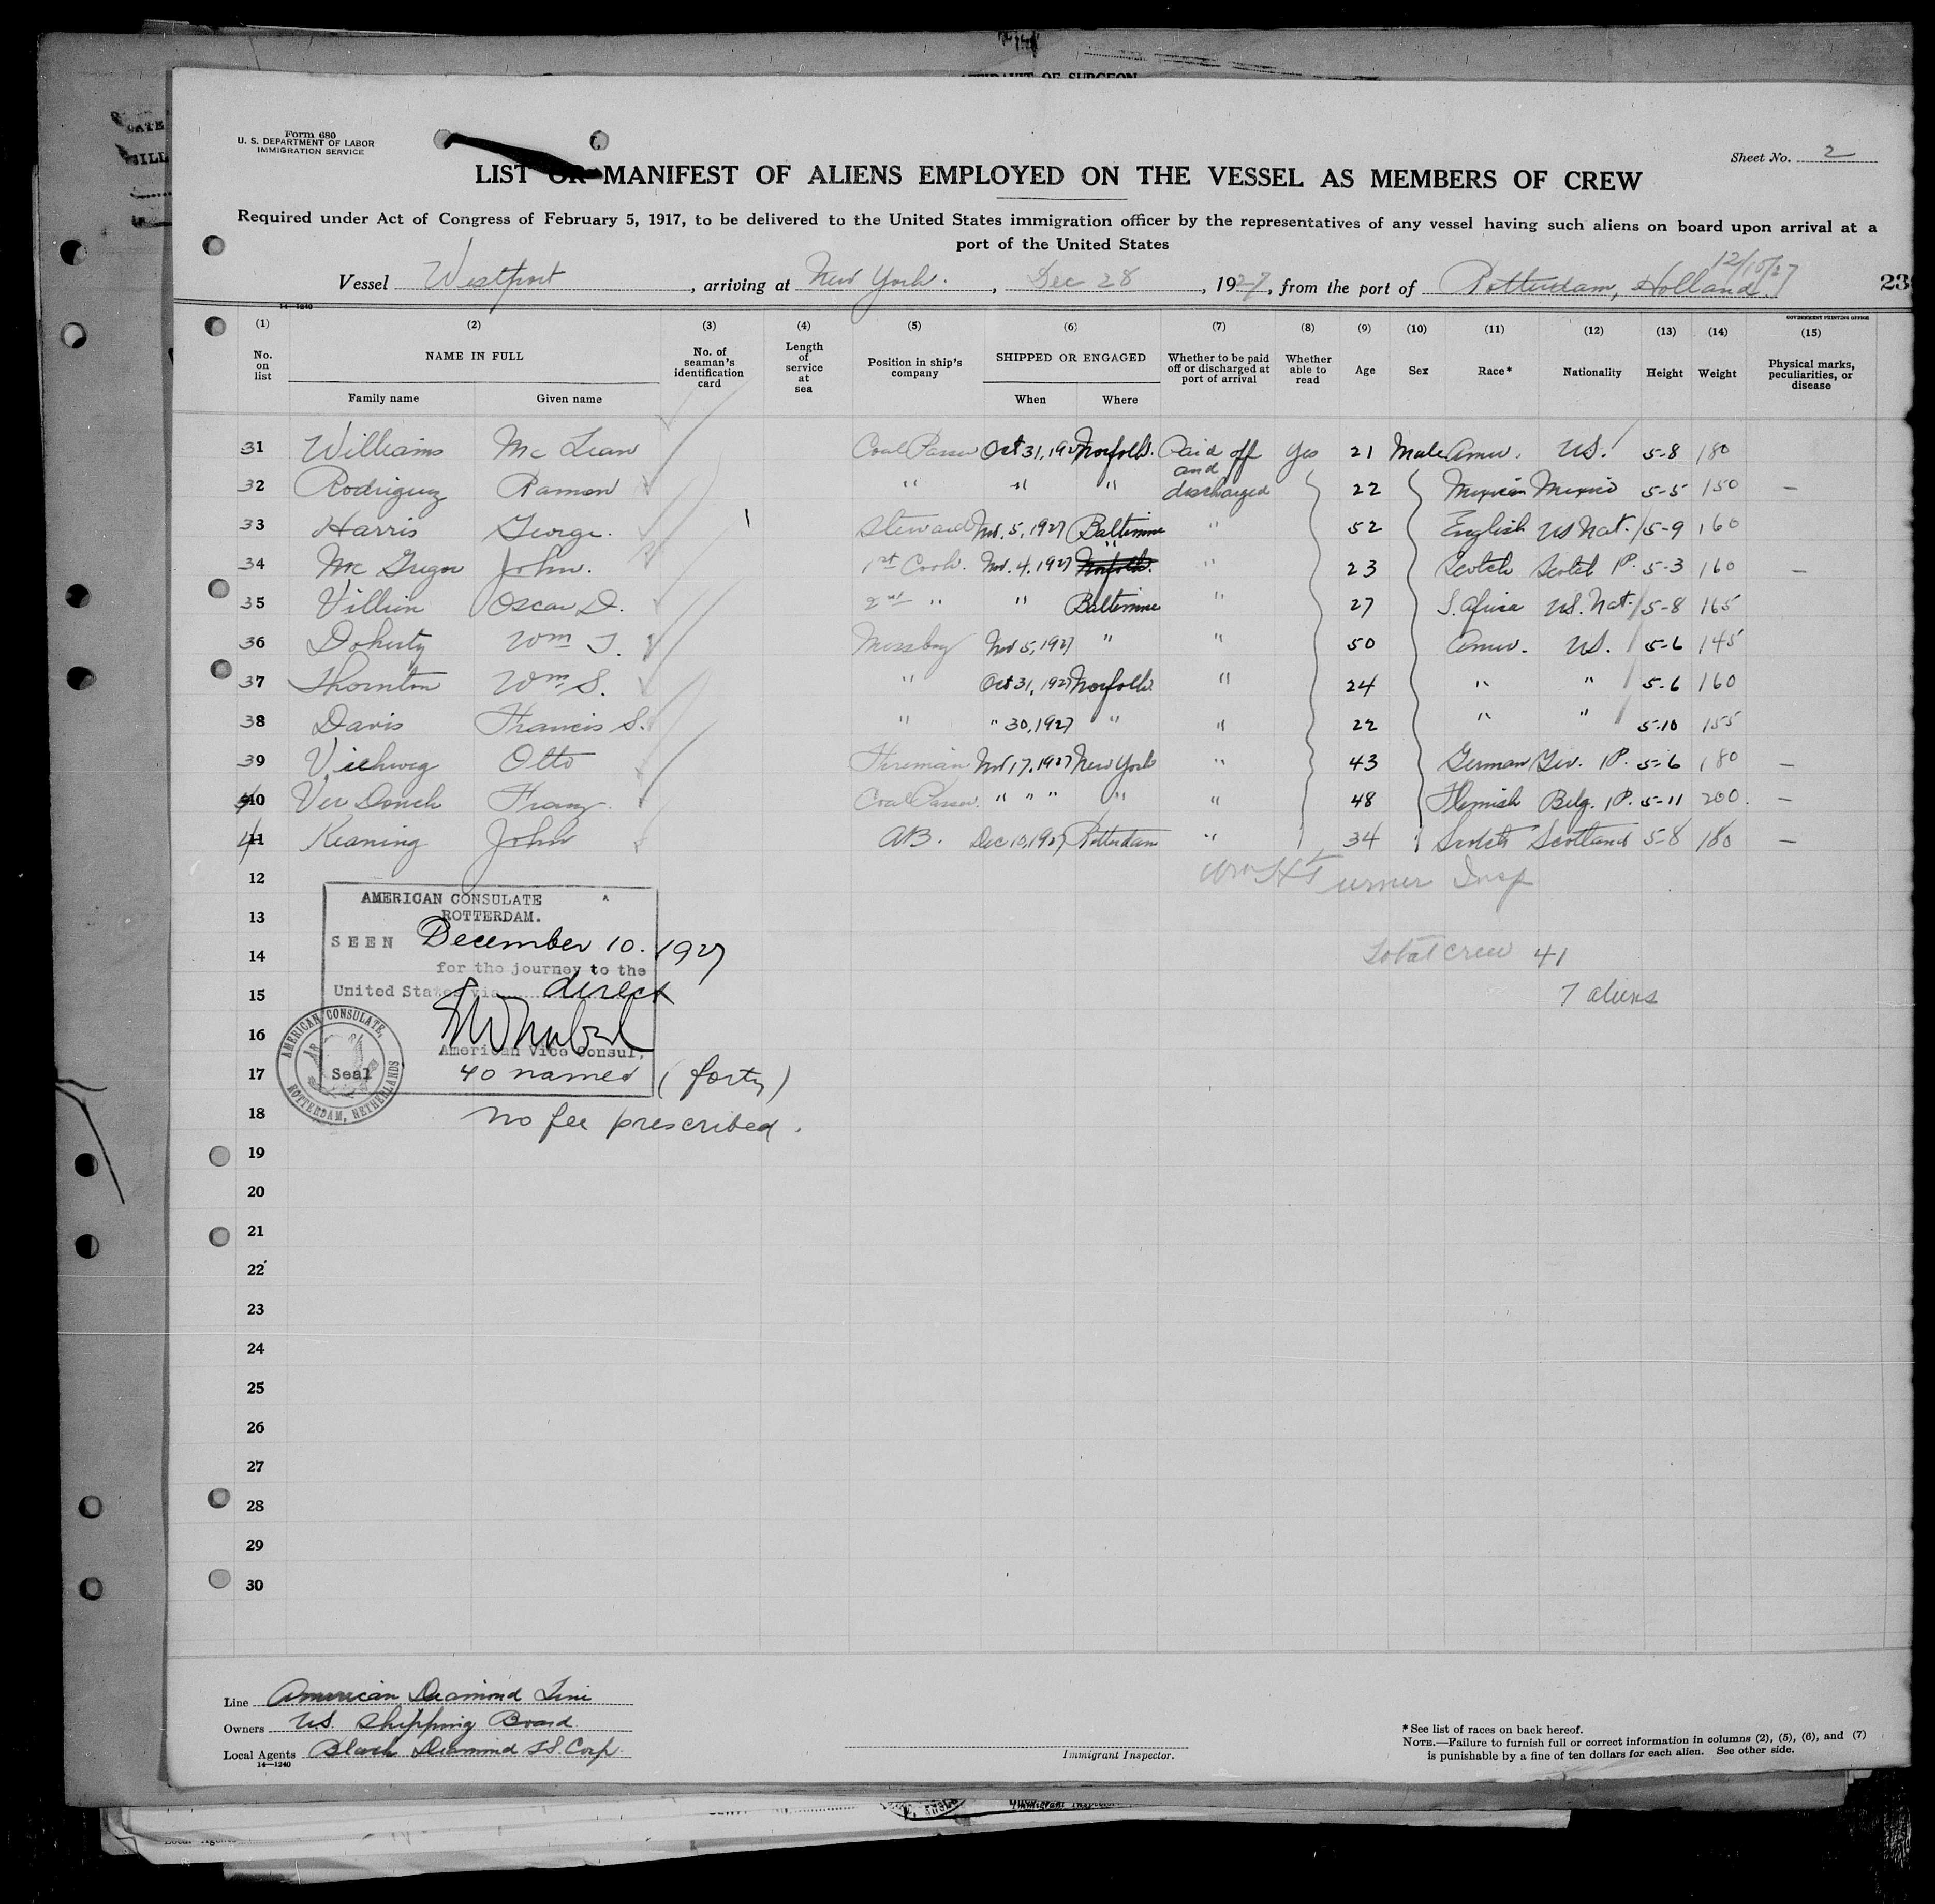 AFFIDAVIT OF SURGEON
Form 680
U. S. DEPARTMENT OF LABOR
IMMIGRATION SERVICE
Sheet No. 2
LIST OR MANIFEST OF ALIENS EMPLOYED ON THE VESSEL AS MEMBERS OF CREW
Required under Act of Congress of February 5, 1917, to be delivered to the United States immigration officer by the representatives of any vessel having such aliens on board upon arrival at a
port of the United States
12/10/27
Vessel Westport, arriving at New York., Dec 28, 1927, from the port of Rotterdam, Holland
23
14-1240
GOVERNMENT PRINTING OFFICE
(1) (2) (3) (4) (5) (6) (7) (8) (9) (10) (11) (12) (13) (14) (15)
No. on list NAME IN FULL No. of seaman's identification card Length of service at sea Position in ship's company SHIPPED OR ENGAGED Whether to be paid off or discharged at port of arrival Whether able to read Age Sex Race* Nationality Height Weight Physical marks, peculiarities, or disease
Family name Given name When Where
31 Williams Mc Lean Coal Passer Oct 31, 192 Norfolk. Paid off and Yes 21 Male Amer. US. 5-8 180
32 Rodriguez Ramon " " " discharged 22 Mexican Mexico 5-5 150 —
33 Harris George. Steward Nov. 5, 1927 Baltimore " 52 English US Nat. 5-9 160
34 Mc Gregor John. 1st Cook. Nov. 4, 1927 " Norfolk. " 23 Scotch Scotch P. 5-3 160 —
35 Villion Oscar D. 2nd " " Baltimore " 27 S. Africa US. Nat. 5-8 165
36 Doherty Wm J. Messboy Nov 5, 1927 " " 50 Amer. US. 5-6 145
37 Thornton Wm S. " Oct 31, 1927 Norfolk. " 24 " " 5-6 160
38 Davis Francis S. " " 30, 1927 " " 22 " " 5-10 155
39 Viehweg Otto Fireman Nov 17, 1927 New York " 43 German Ger. 1P. 5-6 180 —
40 Ver Donck Franz. Coal Passer. " " " " " 48 Flemish Belg. 1P. 5-11 200. —
41 Keaning John AB. Dec 10, 1927 Rotterdam " 34 Scotch Scotland 5-8 180 —
12
Wm H Turner Insp
AMERICAN CONSULATE
13
ROTTERDAM.
SEEN December 10. 1927
14
Total crew 41
for the journey to the
15
United States via direct
7 aliens
16
American Vice Consul,
AMERICAN CONSULATE, ROTTERDAM, NETHERLANDS
17
Seal
40 names (forty)
18
no fee prescribed.
19
20
21
22
23
24
25
26
27
28
29
30
Line American Diamond Line
Owners US. Shipping Board.
Local Agents Black Diamond SS. Corp.
14—1240
Immigrant Inspector.
*See list of races on back hereof.
NOTE.—Failure to furnish full or correct information in columns (2), (5), (6), and (7)
is punishable by a fine of ten dollars for each alien. See other side.